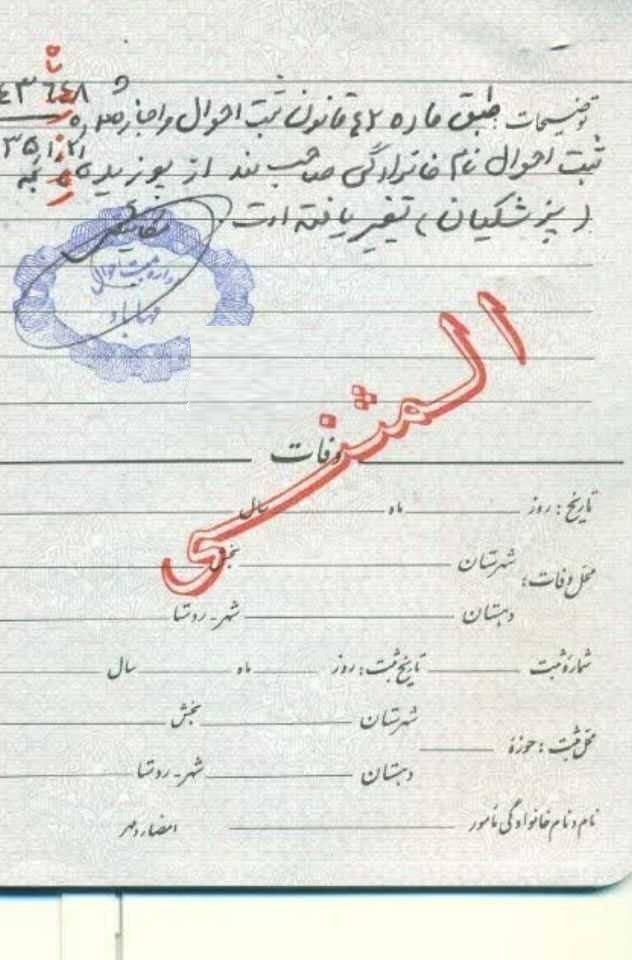 توضیحات طبق ماده ۴۲ قانون ثبت احوال و اجازه ش ۴۳۶۴۸
ثبت احوال نام خانوادگی صاحب سند از بوزید به ۳۵/۱۲/۱
(پزشکیان) تغییر یافته است
اداره ثبت احوال
مهاباد
المثنی
وفات
تاریخ: روز ماه سال
محل وفات: شهرستان بخش
دهستان شهر-روستا
شماره ثبت تاریخ ثبت: روز ماه سال
محل ثبت: حوزه شهرستان بخش
دهستان شهر-روستا
نام و نام خانوادگی مأمور امضاء و مهر